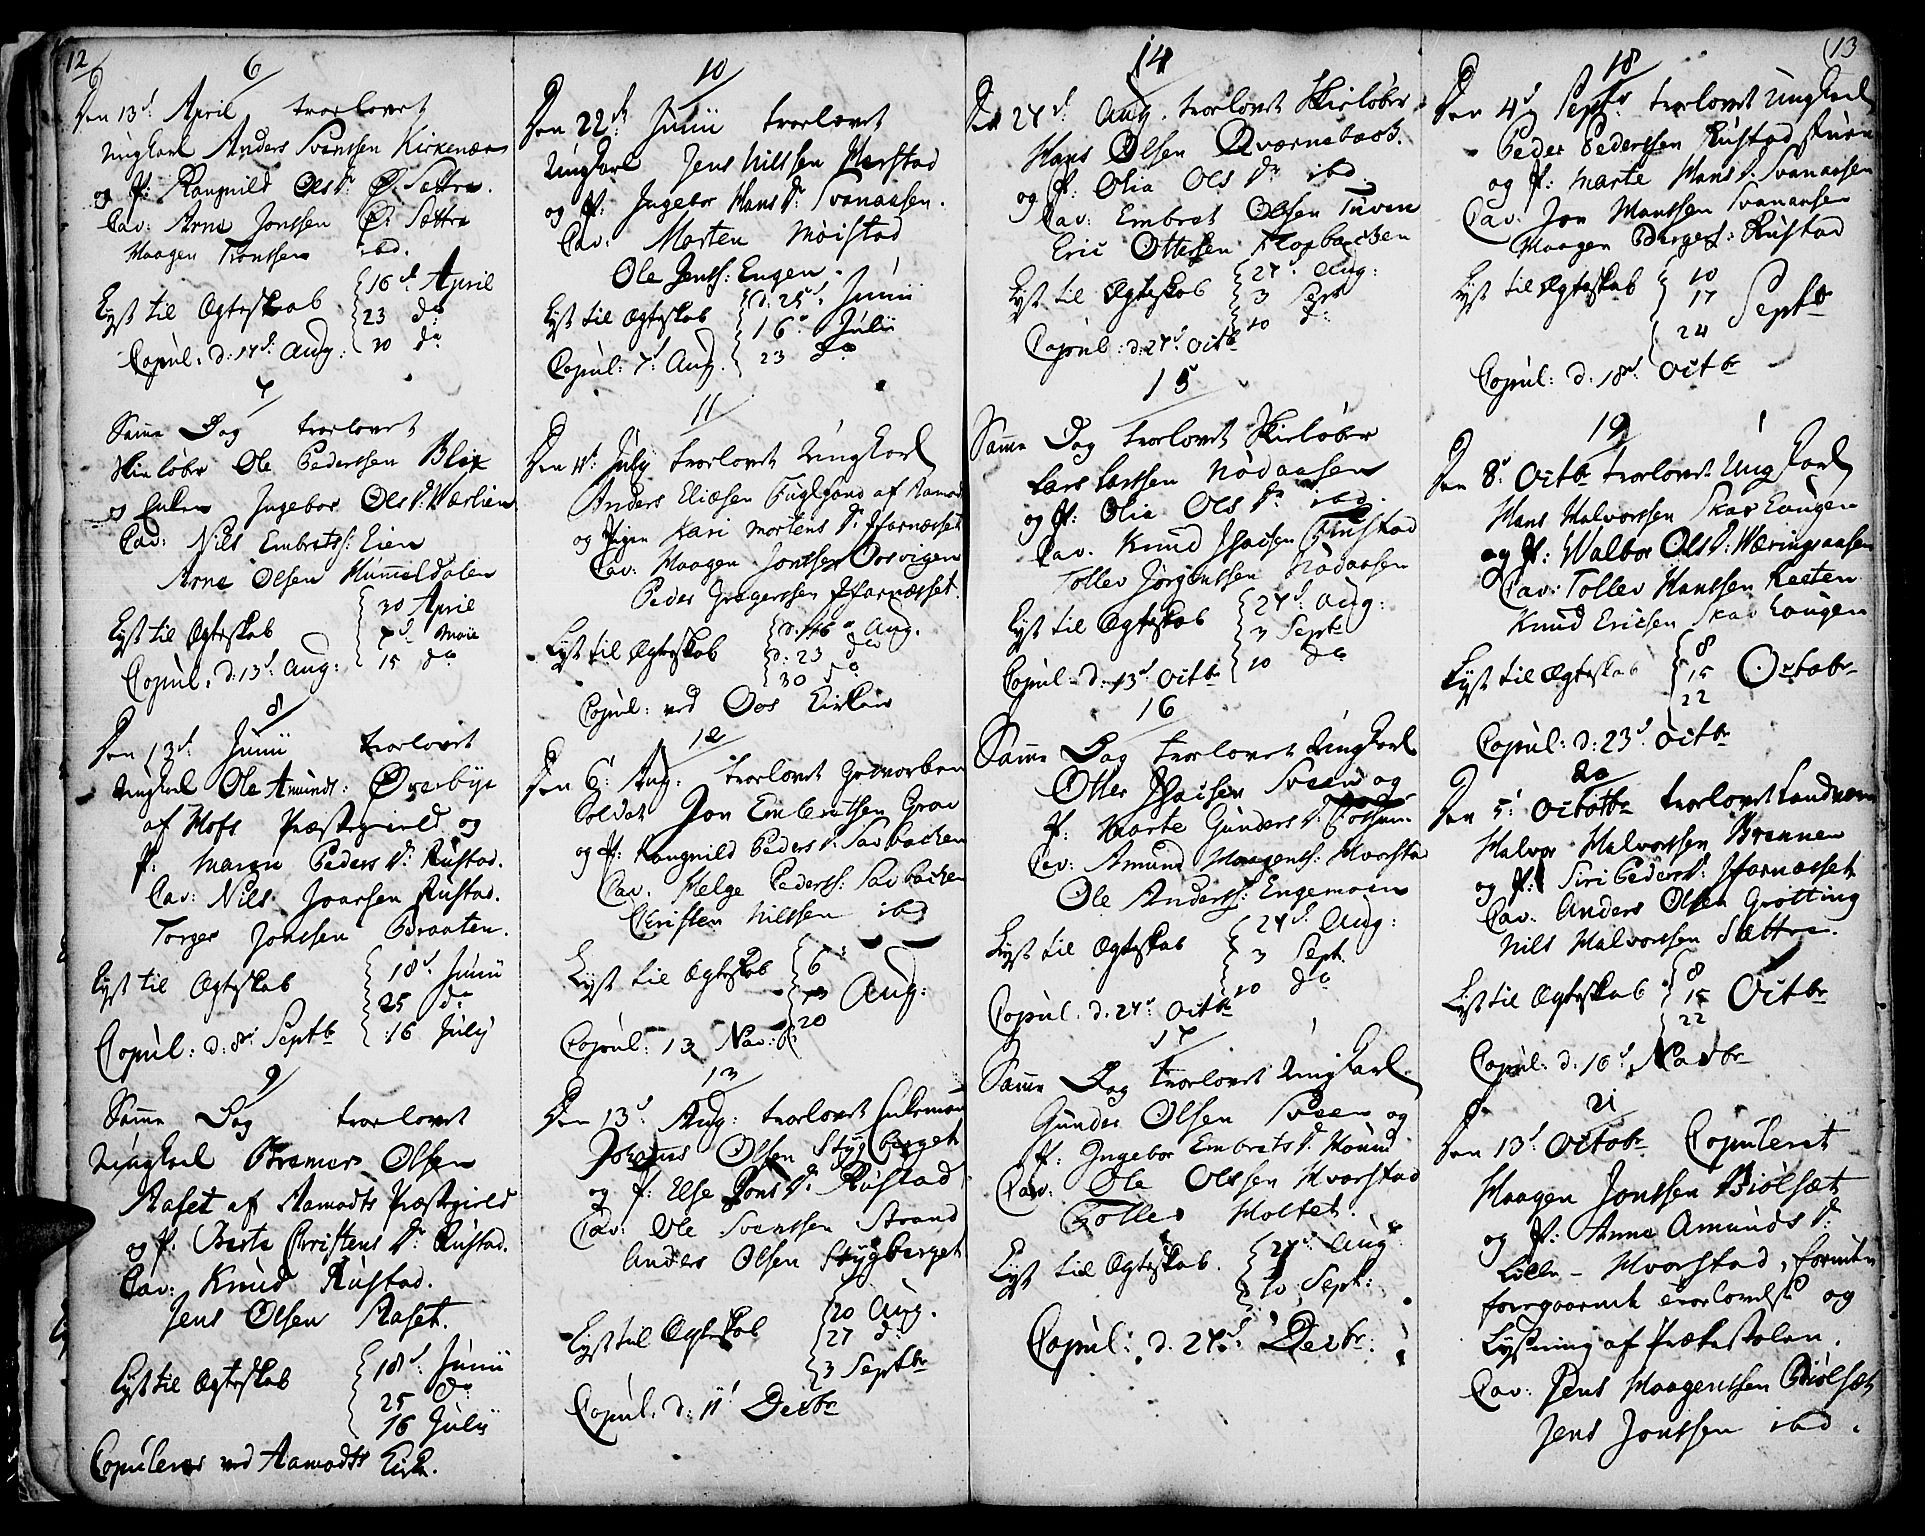 12
6
Den 13d April trorlovet
Ungkarl Anders Svenssen Kirkenær
og P: Rangnild Ols Dr Ø. Sættre.
Cav: Arne Jonssen Ø. Sættre
Haagen Tronssen ibd.
Lyst til Ægteskab { 16d April
23 do
30 do
Copul: d: 17d Aug:
7
Samme Dag trorlovet
Skieløber Ole Pederssen Blix
og Enken Ingebor Ols Dr Værlien
Cav: Nils Embrets: Eien
Arne Olsen Hummeldalen
Lyst til Ægteskab { 30 April
7d Maii
15 do
Copul: d: 13d Aug:
8
Den 13d Junii trorlovet
Ungkarl Ole Amunds: Øverbye
af Hofs Præstegield og
P: Maren Peders Dr Rustad.
Cav: Nils Ivarsen Rustad.
Torger Jonssen Braaten.
Lyst til Ægteskab { 18d Junii
25 do
16 July
Copul: d: 8d Septb
9
Samme Dag trorlovet
Ungkarl Bremer Olsen
Raset af Aamodts Præstegield
og P. Berte Christens Dr Rustad.
Cav: Knud Rustad.
Jens Olsen Raset.
Lyst til Ægteskab { 18d Junii
25 do
16 Julii
Copuleret ved Aamodts Kirke.
10
Den 22d Junii trorlovet
Ungkarl Jens Nilssen Harstad
og P: Ingebor Hans Dr Svenaasen.
Cav: Morten Moistad
Ole Jenss: Engen.
Lyst til Ægteskab { d: 25d Junii
16d Julii
23 do
Copul: 7d Aug.
11
Den 11d July trorlovet Ungkarl
Anders Eliæsen Fuglsand af Aamodt
og Pigen Kari Mortens Dr Ifarnæsset
Cav: Haagen Jonssen Osvigen
Peder Gregerssen Ifarnæsset.
Lyst til Ægteskab { d: 16 Aug.
d: 23 do
30 do
Copul: ved Oos Kirke
12
Den 6d Aug. trorlovet Geworben
Soldat Jon Embretssen Grav
og P: Rangnild Peders Dr Savbachen
Cav. Helge Peders: Savbachen
Christen Nilssen ibd
Lyst til Ægteskab { 6
13 Aug:
20
Copul: 13 Nov:
13
Den 13d Aug: trorlovet Enkemand
Johannes Olsen Stygberget
og P: Else Jons Dr Rustad
Cav: Ole Svenssen Strand
Anders Olsen Stygberget
Lyst til Ægteskab { 20 Aug.
27 do
3 Septbr
Copul: d: 11d Decbr
14
Den 27d Aug. trorlovet Skieløber
Hans Olsen Qværnebæk.
og P: Olia Ols Dr ibd.
Cav: Embret Olssen Tuven
Eric Ottersen Kløpbachen
Lyst til Ægteskab { 27d Aug:
3 Sept
10 do
Copul: d: 27d Octbr
15
Samme Dag trorlovet Skieløber
Lars Larssen Nødaasen
og P: Olia Ols Dr ibd.
Cav. Knud Isacsen Rustad
Tollev Jørgenssen Nødaasen
Lyst til Ægteskab { 27d Aug:
3 Sept
10 do
Copul: d: 13d Octbr
16
Samme Dag trorlovet Ungkarl
Otter Isacsen Sveen og
P: Marte Gunders Dr
Cav: Amund Haagenss: Hvarstad
Ole Anderss: Engemoen
Lyst til Ægteskab { 27d Aug:
3 Sept.
10 do
Copul: d: 27d Octbr
17
Samme Dag trorlovet Ungkarl
Gunder Olsen Sveen og
P: Ingebor Embrets Dr Moum
Cav: Ole Olssen Hvarstad
Tollev Holtet.
Lyst til Ægteskab { 27d Aug:
3
10 Sept:
Copul: d. 27d Decbr:
13
18
Den 4d Septbr trorlovet Ungkarl
Peder Pederssen Rustadstuen
og P: Marte Hans Dr Svenaasen
Cav: Jon Hanssen Svenaasen
Haagen Børges: Rustad
Lyst til Ægteskab { 10
17 Septbr
24
Copul: d: 18d Octbr
19
Den 8d Octbr trorlovet Ungkarl
Hans Halvorssen Skavhougen
og P: Walbor Ols Dr Væringsaasen
Cav: Tollev Hanssen Ræten
Knud Ericsen Skavhougen
Lyst til Ægteskab { 8
15 Octobr
22
Copul: d: 23d Octbr
20
Den 5d Octobr trorlovet Landværn
Halvor Halvorssen Brennen
og P: Siri Peders Dr Ifarnæsset
Cav: Anders Olsen Grøtting
Nils Halvorssen Sættre.
Lyst til Ægteskab { 8
15 Octbr
22
Copul: d. 16d Novbr
21
Den 13d Octobr Copuleret
Haagen Jonssen Biølsæt
og P: Anne Amunds Dr
Lille-Hvarstad, foruden
foregaaende trorlovelse og
Lysning af Prækestolen.
Cav: Jens Haagenssen Biølsæt
Jens Jonssen ibd.